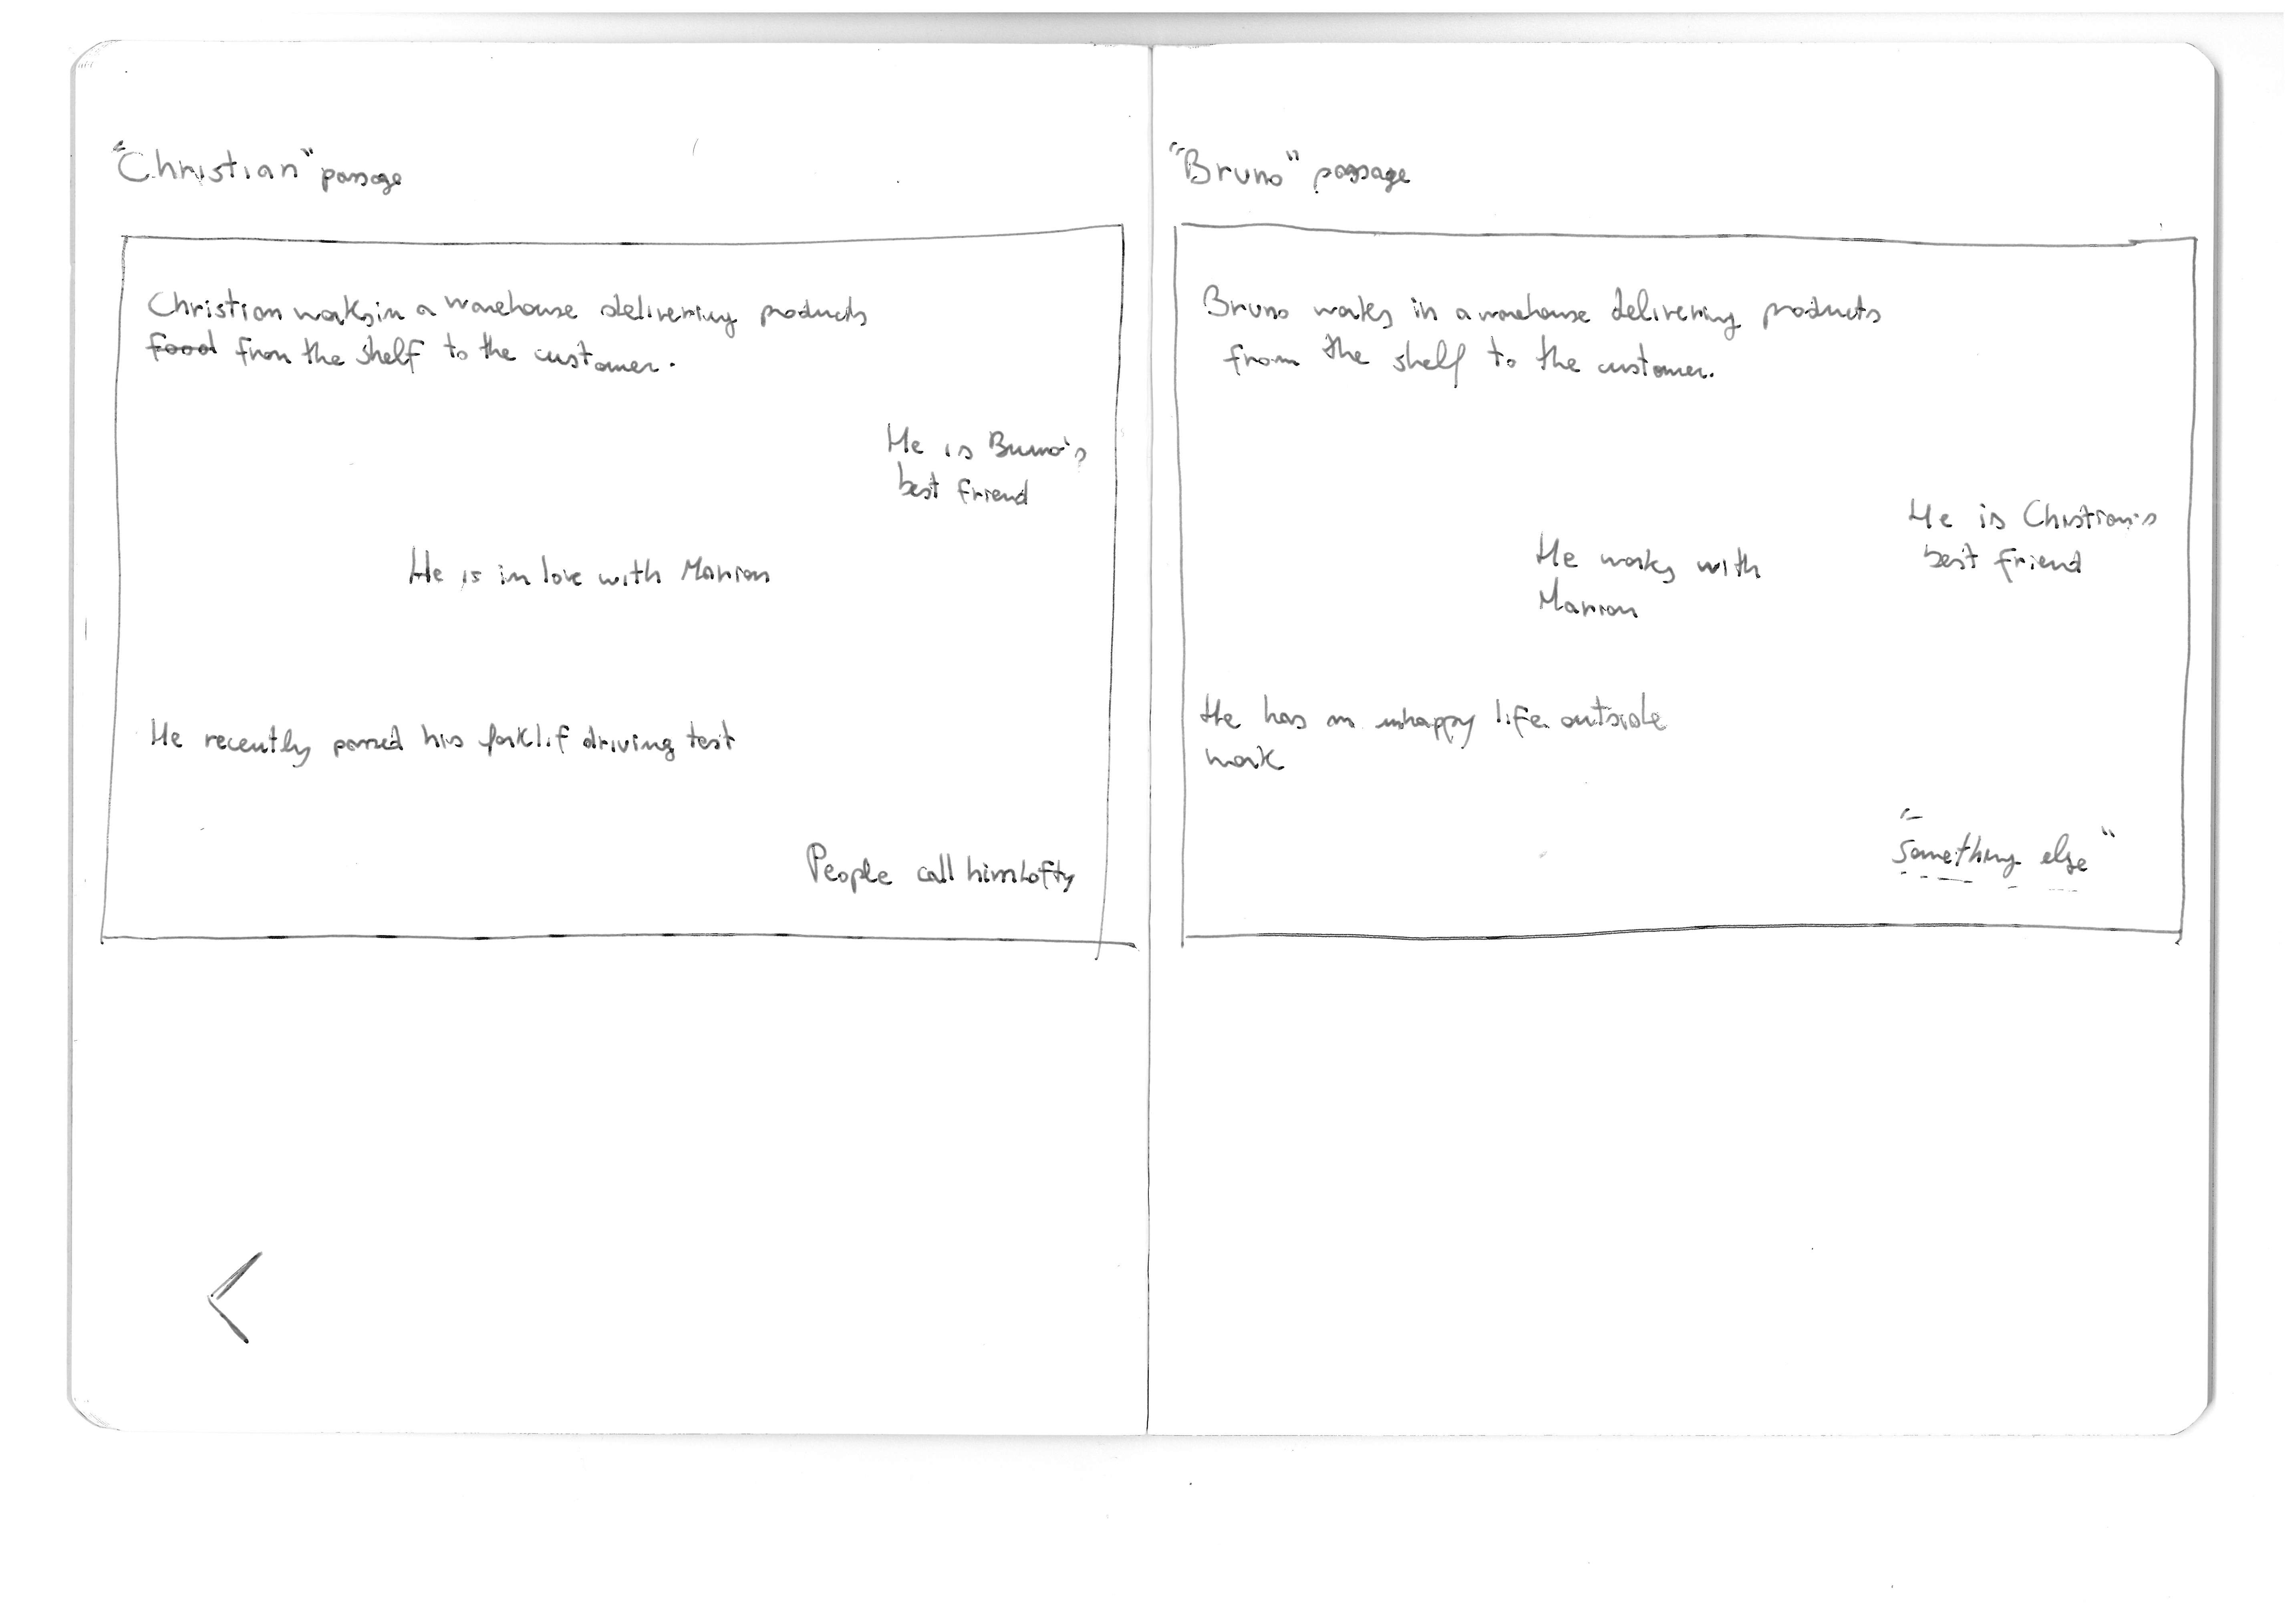 "Christian" passage
Christian works in a warehouse delivering products
food from the shelf to the customer.
He is Bruno's
best friend
He is in love with Marion
He recently passed his forklif driving test
People call him Lofty
"Bruno" passage
Bruno works in a warehouse delivering products
from the shelf to the customer.
He is Christian's
best friend
He works with
Marion
He has an unhappy life outside
work
"Something else"